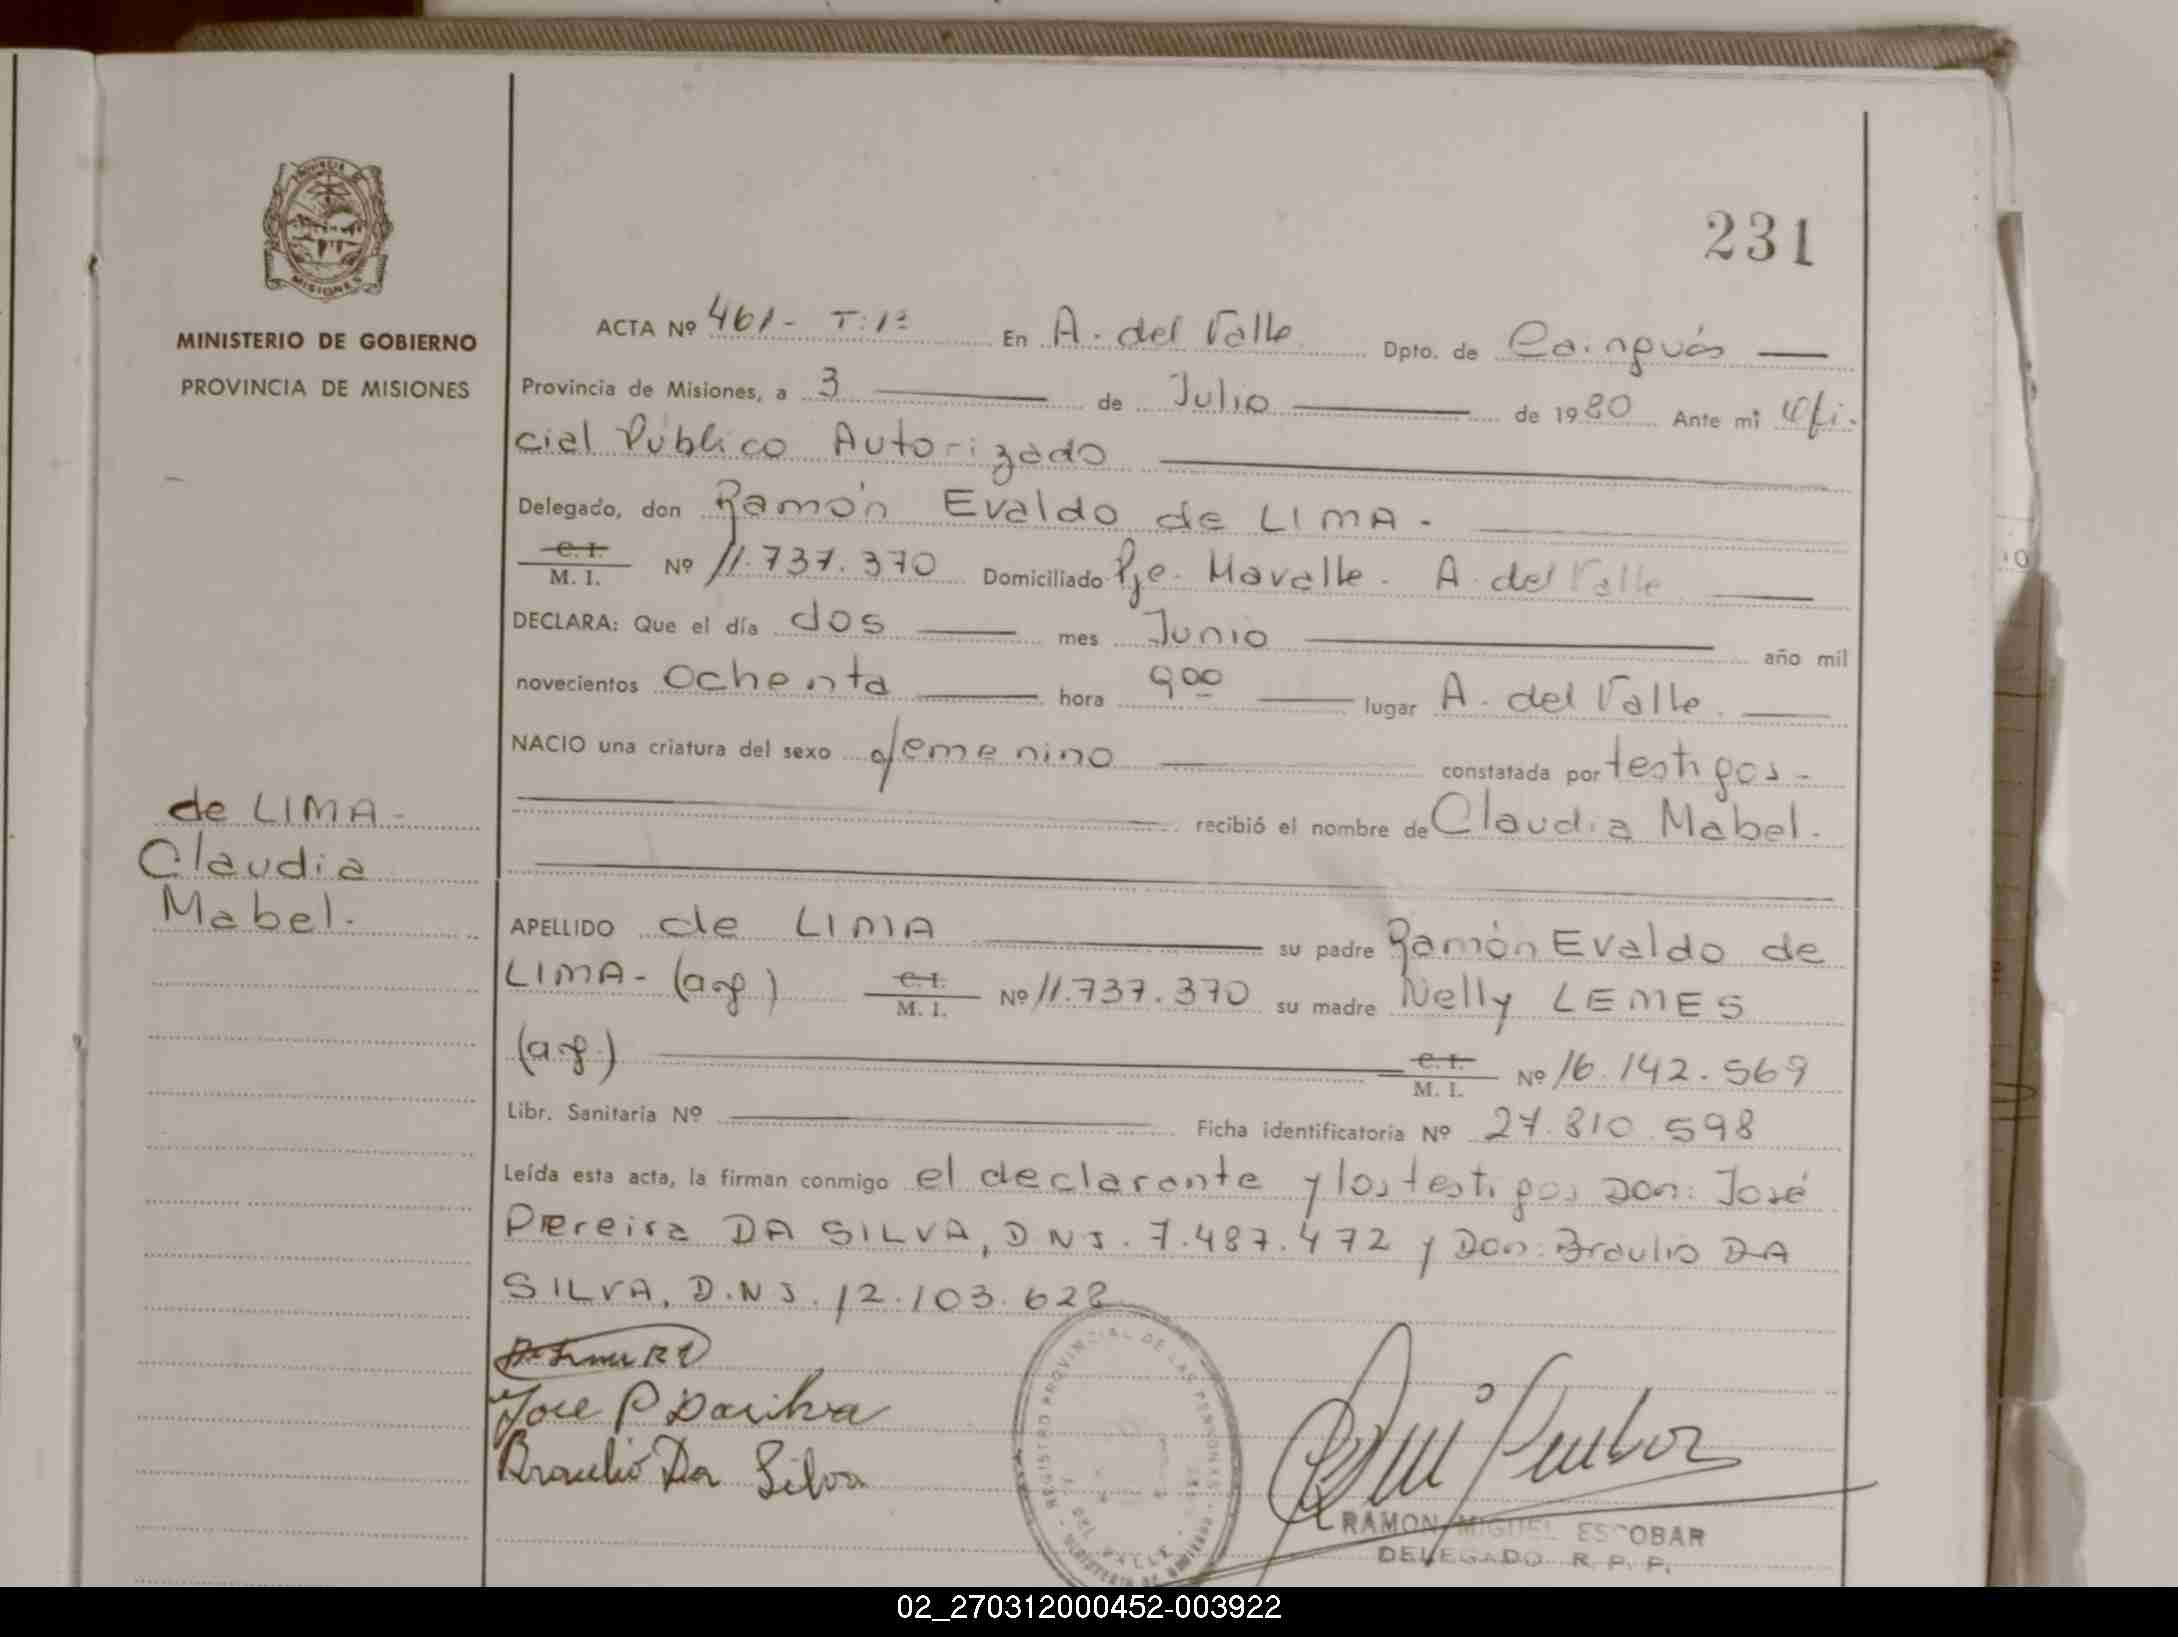 231
PROVINCIA DE
MISIONES
MINISTERIO DE GOBIERNO
PROVINCIA DE MISIONES
ACTA Nº 461- T: 1º En A. del Valle Dpto. de Cainguás
Provincia de Misiones, a 3 de Julio de 1980 Ante mi Ofi-
cial Público Autorizado
Delegado, don Ramón Evaldo de LIMA.-
C. I.
M. I. Nº 11.737.370 Domiciliado Pje. Mavalle. A. del Valle
DECLARA: Que el día dos mes Junio año mil
novecientos ochenta hora 9 00 lugar A. del Valle.
NACIO una criatura del sexo femenino constatada por testigos.-
recibió el nombre de Claudia Mabel.
de LIMA-
Claudia
Mabel.
APELLIDO de LIMA su padre Ramón Evaldo de
LIMA- (arg.) C. I. M. I. Nº 11.737.370 su madre Nelly LEMES
(arg.) C. I. M. I. Nº 16.142.569
Libr. Sanitaria Nº Ficha identificatoria Nº 27.810.598
Leída esta acta, la firman conmigo el declarante y los testigos Don: José
Pereira DA SILVA, DNI. 7.487.472 y Don: Braulio DA
SILVA, D.N.I. 12.103.628
Jose P Dasilva
Braulio Da Silva
REGISTRO PROVINCIAL DE LAS PERSONAS
DEL VALLE
MINISTERIO DE GOBIERNO
RAMON MIGUEL ESCOBAR
DELEGADO R. P. P.
10
02_270312000452-003922